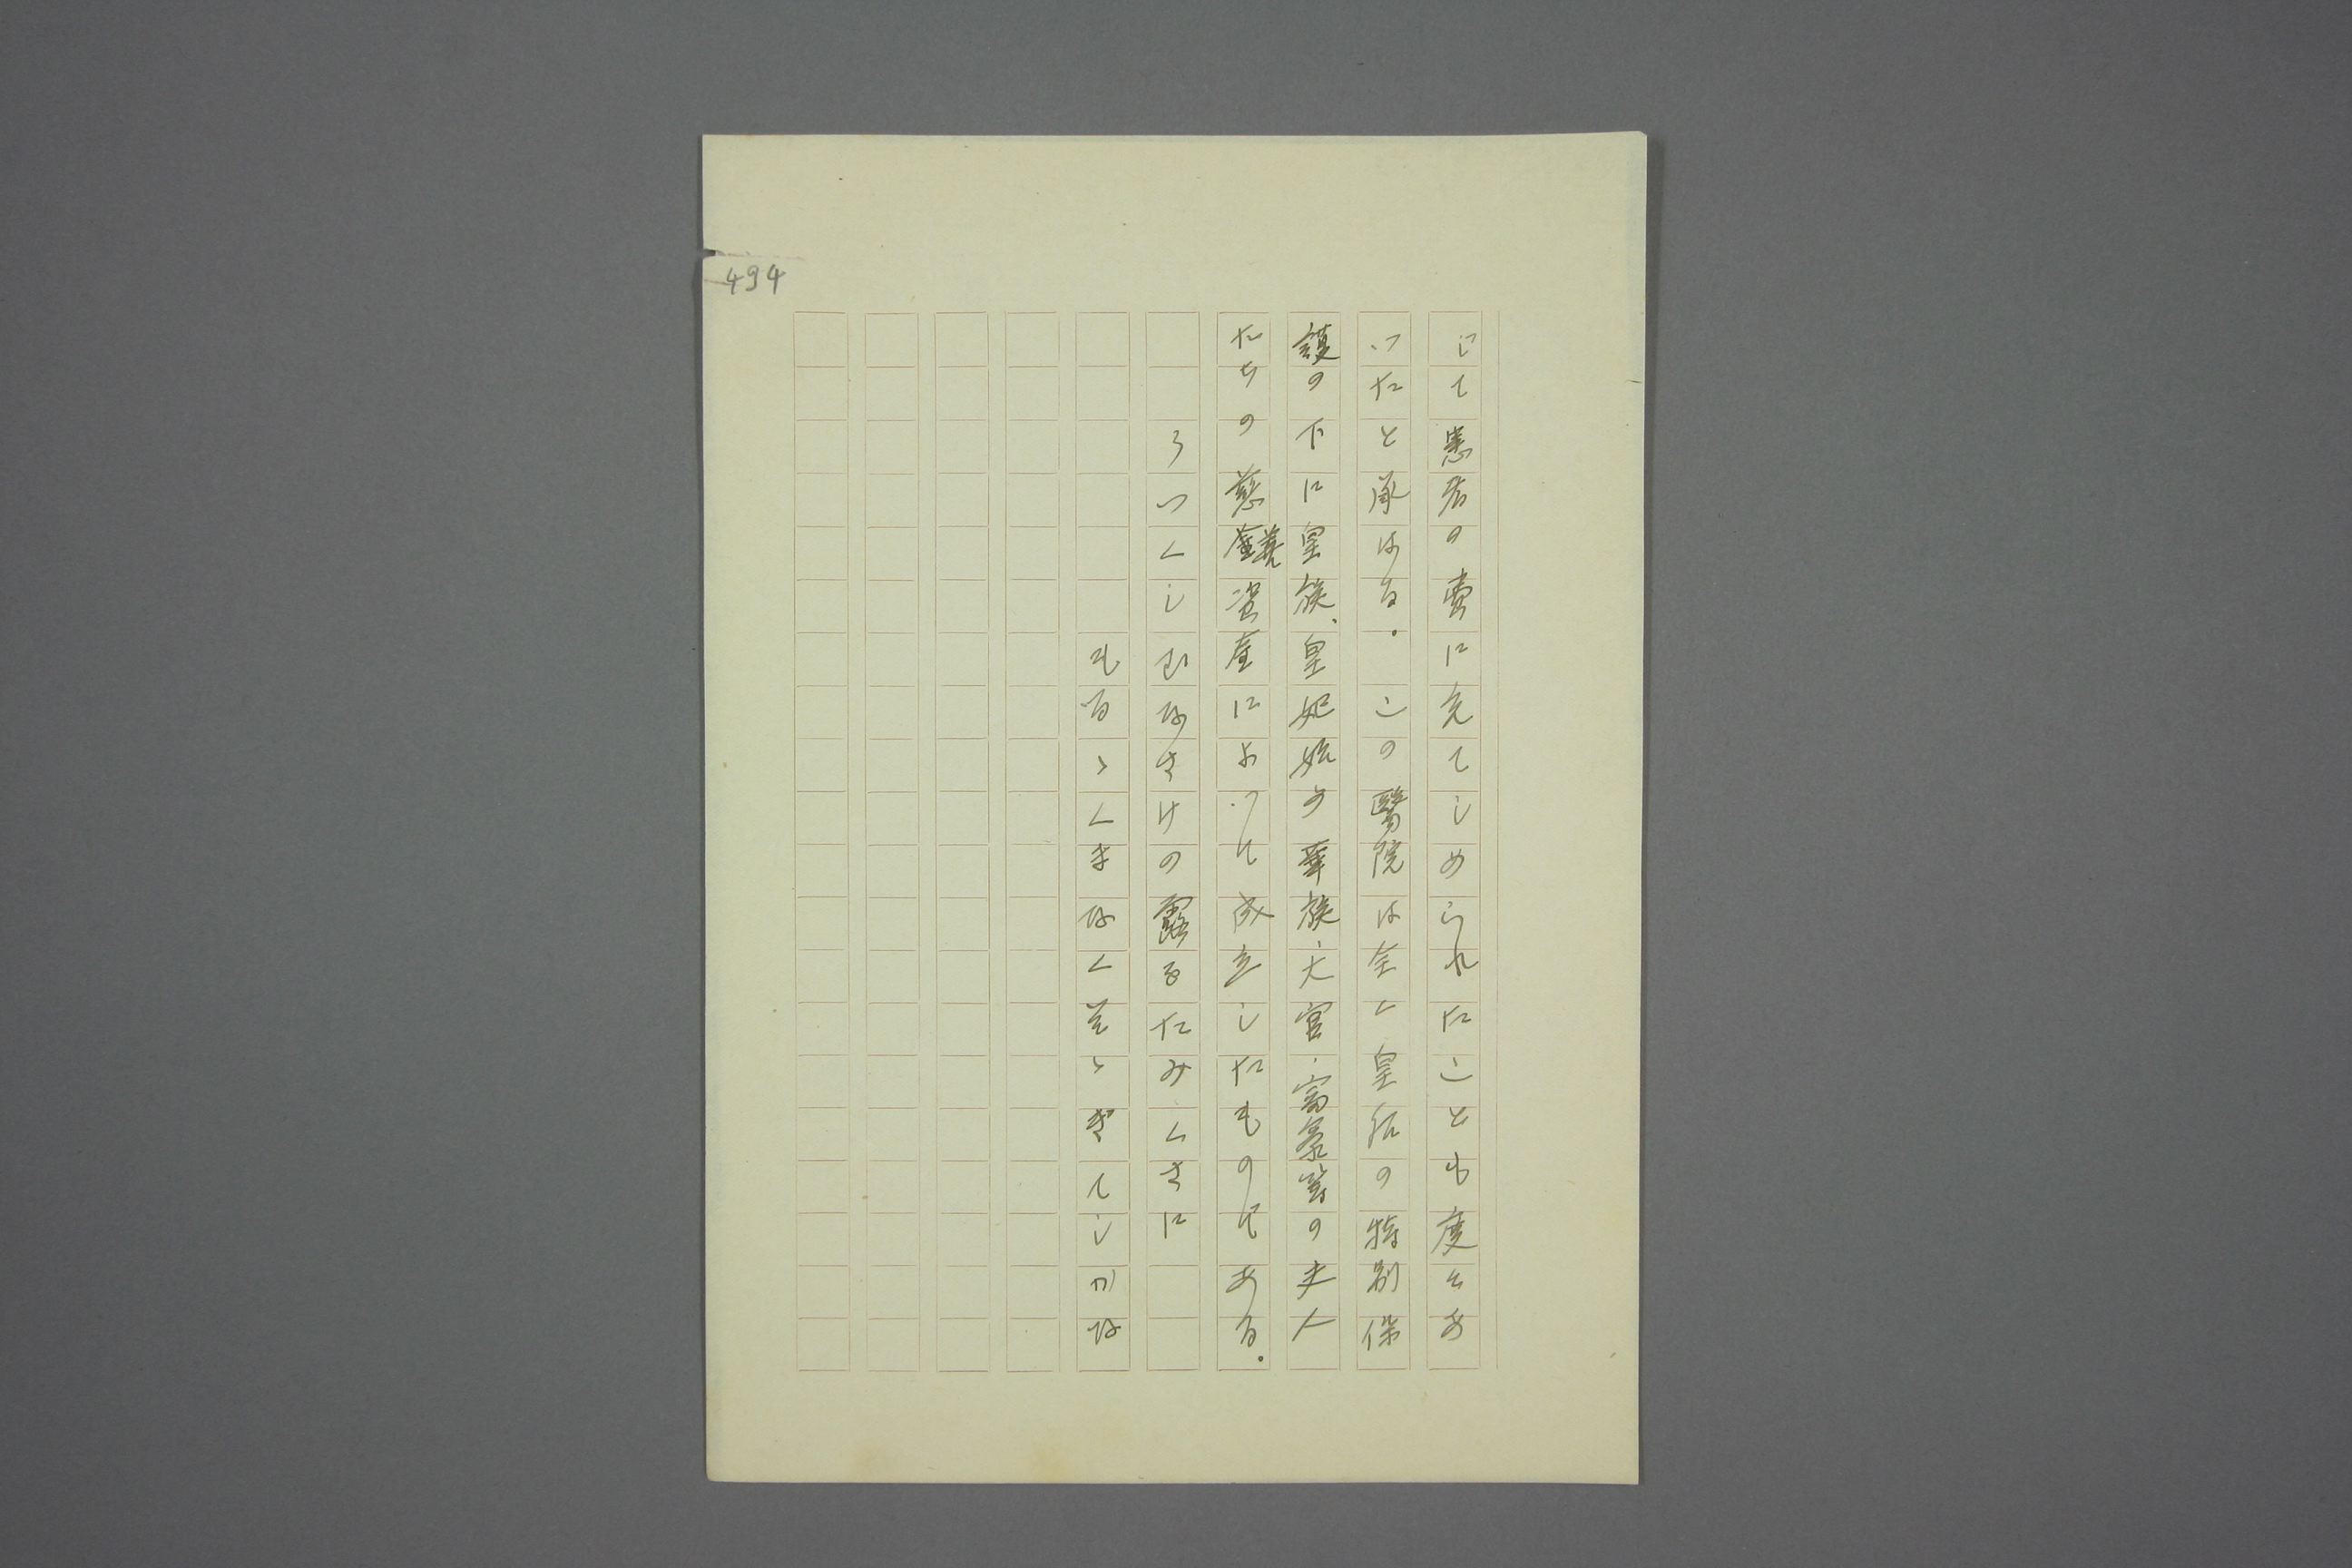 494
じて患者の費に充てしめられたことも度々あ
つたと承はる。この醫院は全く皇后の特別保
護の下に皇族、皇妃始め華族・大官・富豪等の夫人
たちの慈善資産によつて成立したものである。
うつくしむなさけの露るたみくさに
もるゝくまなくそゝぎてしがな